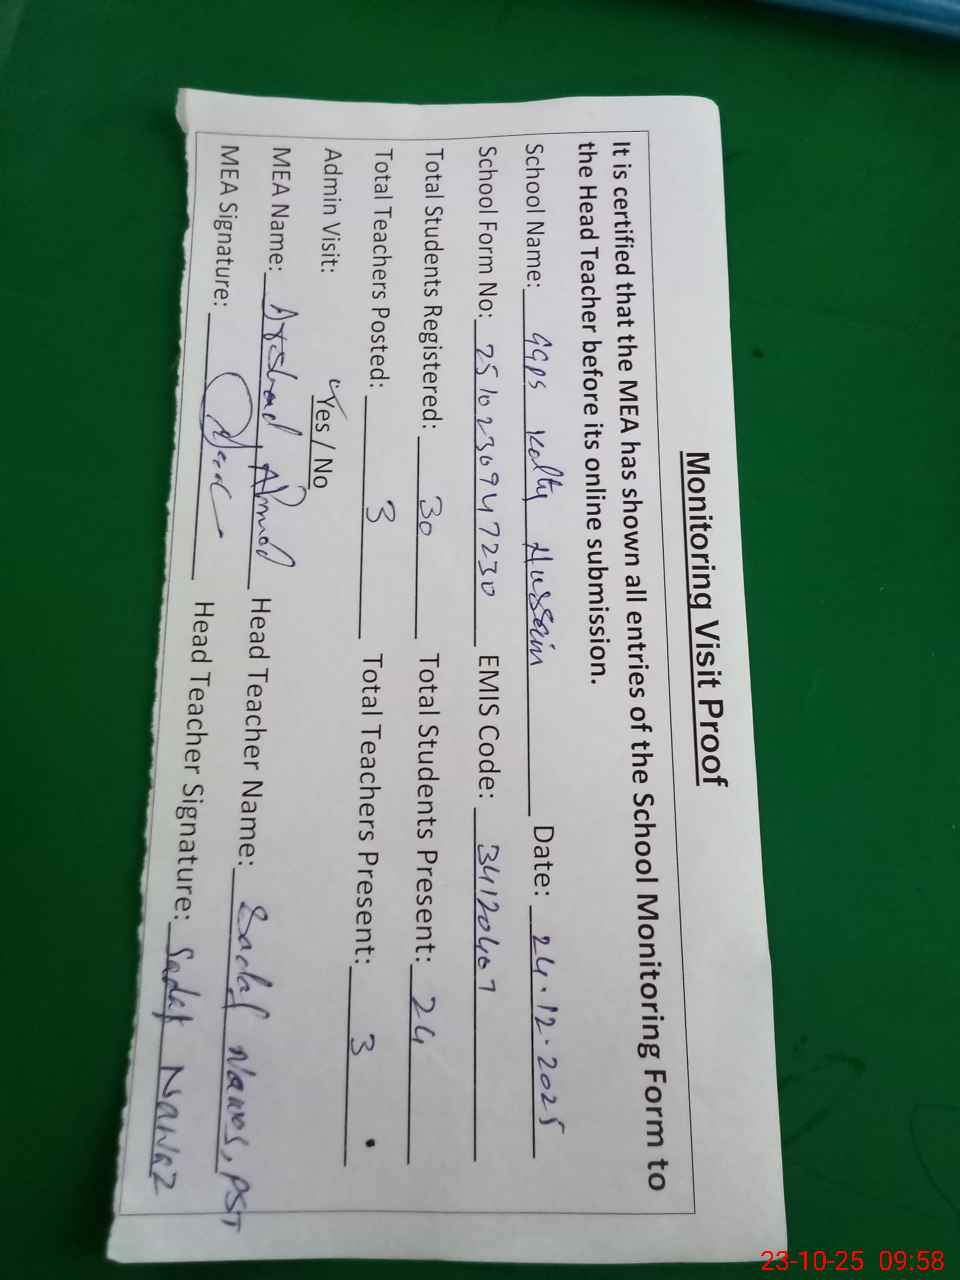 Monitoring Visit Proof
It is certified that the MEA has shown all entries of the School Monitoring Form to
the Head Teacher before its online submission.
School Name: GGPS Kalty Hussain Date: 24.12.2025
School Form No: 2510230947230 EMIS Code: 34120407
Total Students Registered: 30 Total Students Present: 24
Total Teachers Posted: 3 Total Teachers Present: 3
Admin Visit: Yes / No
MEA Name: Arshad Ahmad Head Teacher Name: Sadaf Nawaz, PST
MEA Signature: Head Teacher Signature: Sadaf Nawaz
23-10-25 09:58